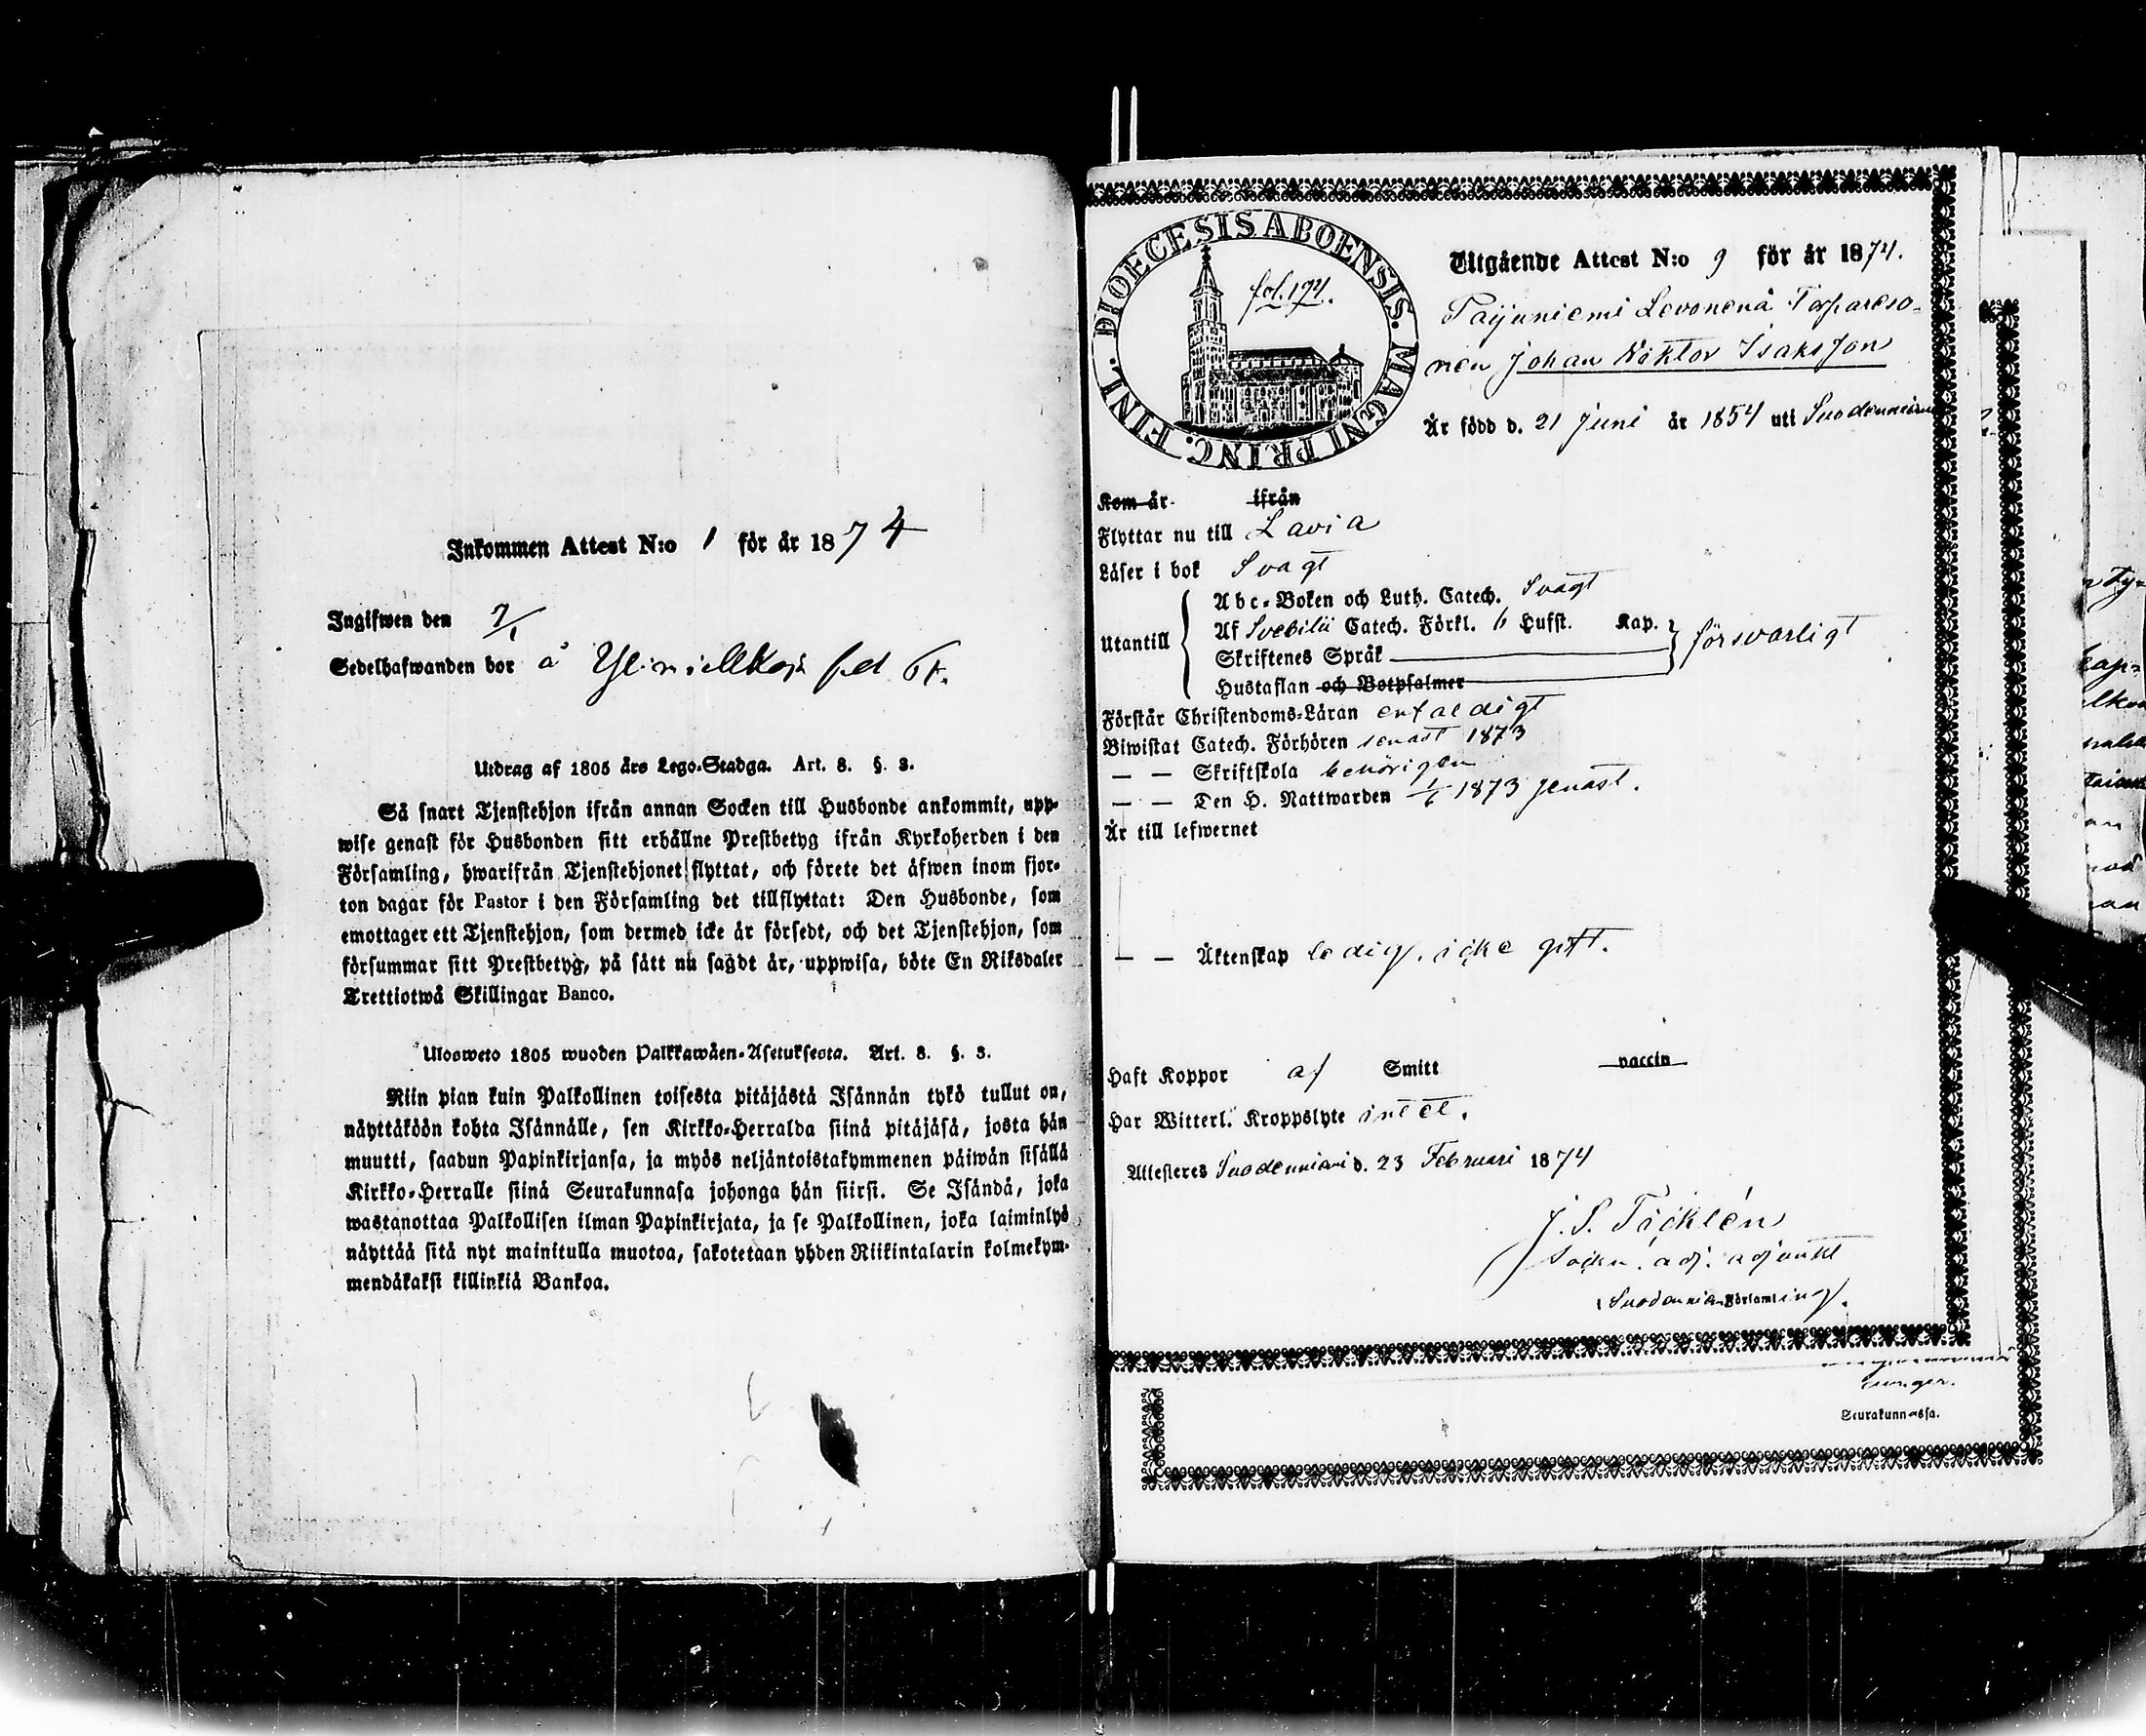 Inkommen Attest N:o 1 för år 1874
Ingifwen den 7/1
Sedelhafwanden bor å
Utdrag af 1805 års Lego-Stadga. Art. 8. §. 3.
Så snart Tjenstehjon ifrån annan Socken till Husbonde ankommit, upp-
wise genast för Husbonden sitt erhållne Prestbetyg ifrån Kyrkoherden i den
Församling, hwarifrån Tjenstehjonet flyttat, och förete det äfwen inom fjor-
ton dagar för Pastor i den Församling det tillflyttat: Den Husbonde, som
emottager ett Tjenstehjon, som dermed icke är försedt, och det Tjenstehjon, som
försummar sitt Prestbetyg, på sätt nu sagdt är, uppwisa, böte En Riksdaler
Trettiotwå Skillingar Banco.
Ulosweto 1805 wuoden Palkkawäen-Asetuksesta. Art. 8. §. 3.
Niin pian kuin Palkollinen toisesta pitäjästä Isännän tykö tullut on,
näyttäköön kohta Isännälle, sen Kirkko-Herralda siinä pitäjäsä, josta hän
muutti, saadun Papinkirjansa, ja myös neljäntoistakymmenen päiwän sisällä
Kirkko-Herralle siinä Seurakunnasa johonga hän siirsi. Se Isändä, joka
wastanottaa Palkollisen ilman Papinkirjata, ja se Palkollinen, joka laiminlyö
näyttää sitä nyt mainitulla muotoa, sakotetaan yhden Riikintalarin kolmekym-
mendäkaksi killinkiä Bankoa.
DIOECESIS ABOENSIS. MAGNI PRINC. FINL.
fol. 174.
Utgående Attest N:o 9 för år 1874.
Taijuniemi Levonena Torpareso-
nen Johan Wiktor Isaksson
Är född d. 21 Juni år 1854 uti Suodenniemi
Kom år ifrån
Flyttar nu till Lavia
Läser i bok Svagt
Utantill
Abc-Boken och Luth. Catech. Svagt
Af Svebilii Catech. Förkl. 6 Hufst. Kap. försvarligt
Skriftenes Språk
Hustaflan och Botpsalmer
Förstår Christendoms-Läran enfaldigt
Biwistat Catech. Förhören senast 1873
— — Skriftskola behörigen
— — Den H. Nattwarden 1/6 1873 senast.
Är till lefwernet
— — Äktenskap ledig, icke gift.
Haft Koppor af Smitt vaccin
Har Witterl. Kroppslyte intet.
Attesteres Suodenniemi d. 23 Februari 1874
J. S. Täcklén
Sockn. adj. adjunkt
Suodenniemi Församling.
Seurakunnassa.